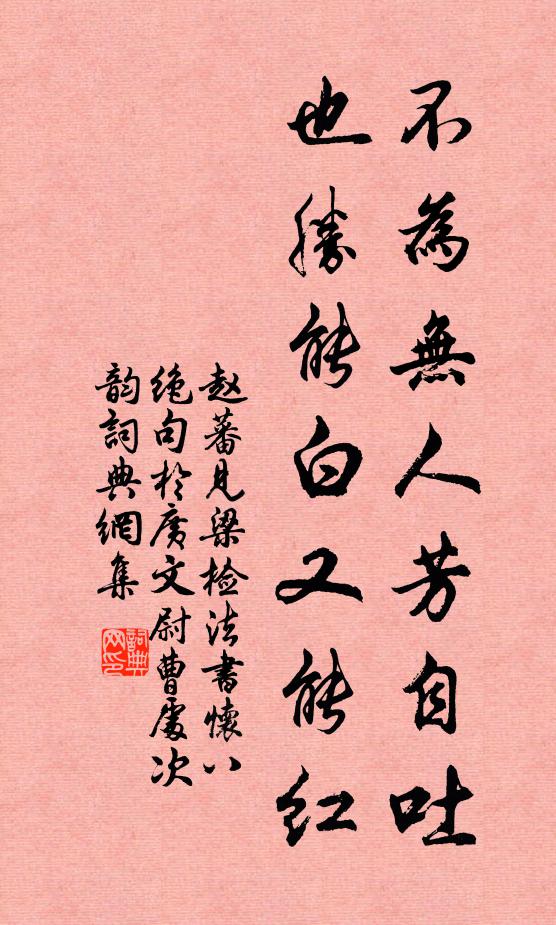 不為無人芳自吐
也勝能白又能紅
赵蕃見梁檢法書懷八
絶句於廣文尉曹處次
韵詞典網集
詞典网印